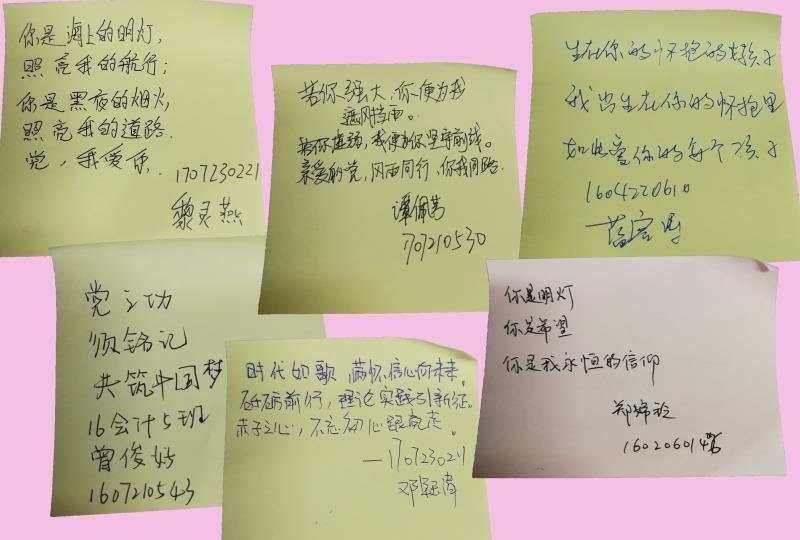 你是海上的明灯,
照亮我的航行;
你是黑夜的烟火,
照亮我的道路.
党,我爱你.
1707230221
黎灵燕
若你强大,你便为我
遮风挡雨。
若你虚弱,我便为你坚守前线。
亲爱的党,风雨同行,你我同路.
谭佩
170210530
生在你的怀抱的孩子
我出生在你的怀抱里
如此爱你的每个孩子
1604220610
党之功
须铭记
共筑中国梦
16会计5班
曾俊
1607210543
时代如歌 满怀信心向未来.
砥砺前行,理论实践引新征.
赤子之心,不忘初心跟党走。
—170723021
邓
你是明灯
你是希望
你是我永恒的信仰
郑婷玲
16020601